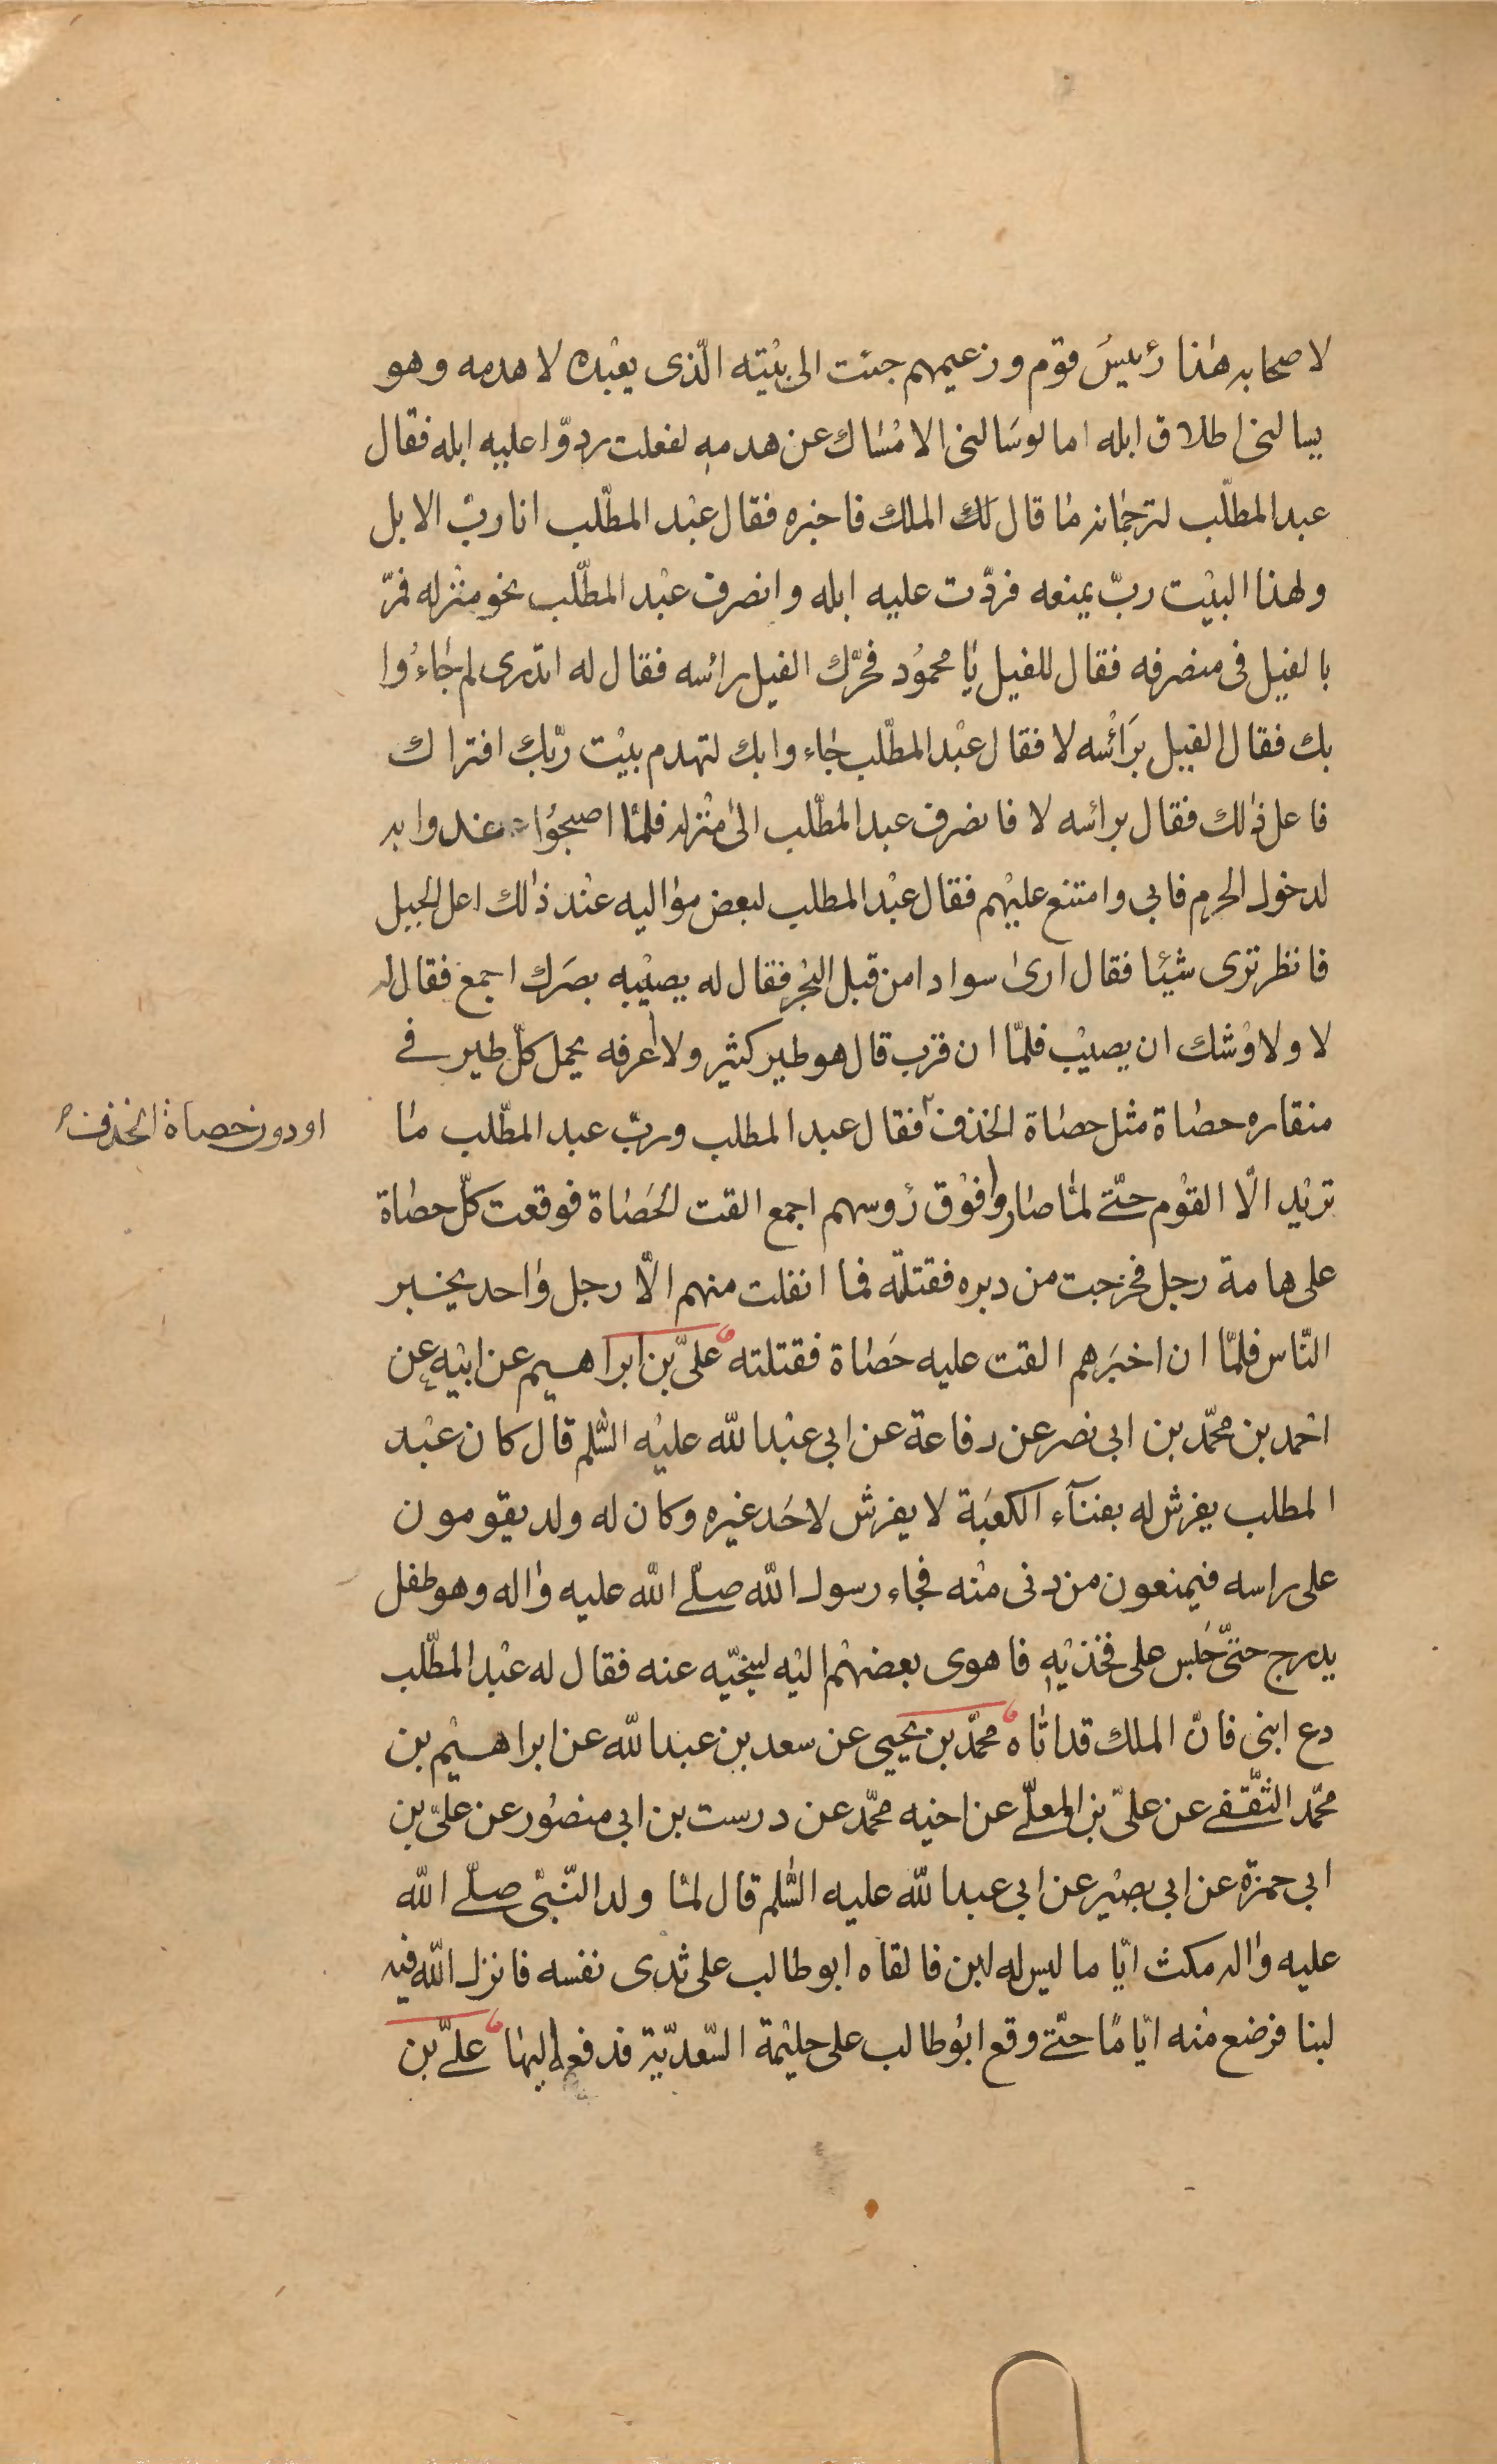 لاصحابه هٰذا رئيسُ قوم وزعيمهم جئت الى بيْته الّذى يعْبده لاهدمه وهو
يسالنى اطلاق ابله امالوسَالنى الامْسَاك عن هدمه لفعلت ردوّا عليه ابله فقال
عبدالمطلّب لترجمانه مٰا قال لك الملك فاخبره فقال عبْد المطّلب انا ربّ الابل
ولهذا البيْت ربّ يمنعه فردّت عليه ابله وانصرف عبْد المطلّب نحو منْزله فمرّ
بالفيل فى منصرفه فقال للفيل يٰا محموُد فحرّك الفيل رائسه فقال له اتدرى لم جٰاءُوا
بك فقال الفيل برَائْسه لا فقال عبْدالمطلّب جٰاءوا بك لتهدم بيْت ربّك افتراك
فاعل ذٰلك فقال برائسه لا فانصرف عبدالمطّلب الىٰ منْزله فلمّا اصبحوُا غدوا به
لدخول الحرم فابى وامتنع عليْهم فقال عبْدالمطلب لبعض مواليه عنْد ذٰلك اعل الجبل
فانظر ترى شيئا فقال ارىٰ سوادا من قبل البحْر فقال له يصيْبه بصَرك اجمع فقال له
لا ولاوْشك ان يصيْب فلمّا ان قرب قال هو طير كثير ولا أعرفه يحمل كلّ طير فے
منقاره حصٰاة مثل حصٰاة الخذف فقال عبدالمطلب وربّ عبدالمطّلب مٰا
اودون حصاة الخذف
تريْد الّا القوْم حتّے لمّا صٰاروا فوْق رؤسهم اجمع القت الحَصٰاة فوقعت كلّ حصٰاة
على هامة رجل فخرجت من دبره فقتلته فما انفلت منهم الّا رجل وٰاحد يخبر
النّاس فلمّا ان اخبَرهم القت عليه حَصٰاة فقتلته علىّ بن ابراهيم عن ابيْه عن
احْمد بن محمّد بن ابى نصر عن رفاعة عن ابى عبْدالله عليْه السّلم قال كان عبْد
المطلب يفرش له بفنآء الكعبَة لا يفرش لاحَد غيره وكان له ولد يقومون
على راسه فيمنعون من دنى منْه فجاء رسول الله صلّے الله عليه وٰاله وهو طفل
يدرج حتىّ جَلس على فخذيْه فاهوى بعضهْم اليْه لينحّيه عنه فقال له عبْدالمطّلب
دع ابنى فانّ الملك قد اتٰاه محمّد بن يحيى عن سعد بن عبدالله عن ابراهيْم بن
محمّد الثقّفے عن علىّ بن المعلّے عن اخيه محمّد عن درست بن ابى منصوُر عن علىّ بن
ابى حمزة عن ابى بصيْر عن ابى عبدالله عليه السّلم قال لمّا ولد النّبىّ صلّے الله
عليه وٰاله مكث ايّاما ليس له لبن فالقاه ابوطالب على ثدى نفسه فانزل الله فيه
لبنا فرضع منْه ايّامًا حتّے وقع ابوُطالب على حليْمة السّعديّة فدفعه اليهٰا علےّ بن